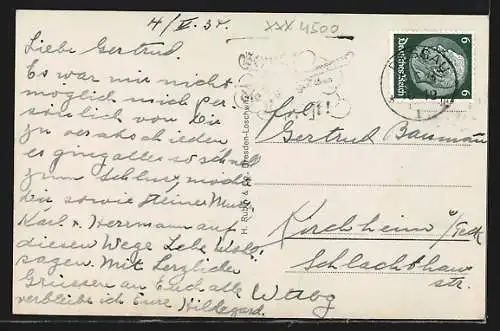 4/V. 34.
XXX 4500
Liebe Gertrud.
Es war mir nicht
möglich mich per
sönlich von Dir
zu verabschieden
es ging alles so schnell
zum Schluss, möchte
Dir sowie Deiner Mutter
Karl u. Herrmann auf
diesen Wege Lebe Wohl
sagen. Mit herzlichen
Grüssen an Euch alle
verbleibe ich Eure Hildegard.
H. Rubin & Co., Dresden-Loschwitz
Deutsches Reich
6 6
Frl.
Gertrud Baumann
Kirchheim u/Teck
Schlachthaus
str.
Wttbg